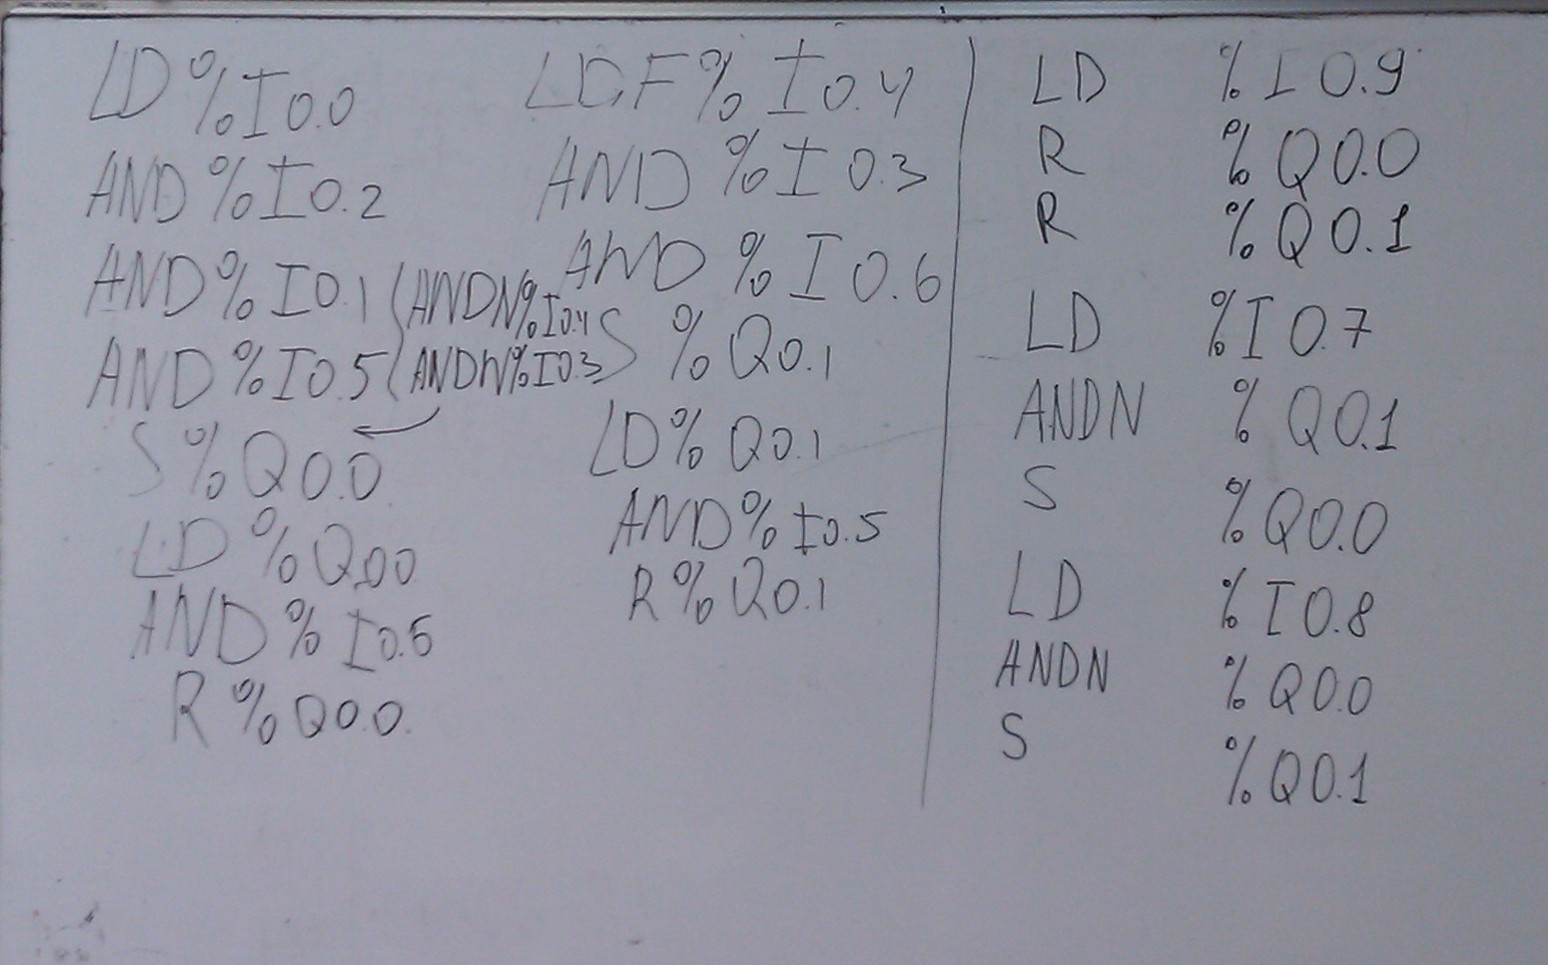 LD %I0.0
AND %I0.2
AND % I0.1 (ANDN%I0.4
AND %I0.5 (ANDN%I0.3
S % Q0.0
LD %Q0.0
AND % I0.6
R % Q0.0.
LDF % I0.4
AND %I 0.3
AND % I 0.6
S % Q0.1
LD% Q0.1
AND% I0.5
R % Q0.1
LD %I 0.9
R %Q0.0
R %Q0.1
LD %I 0.7
ANDN % Q0.1
S %Q0.0
LD % I0.8
ANDN %Q0.0
S %Q0.1